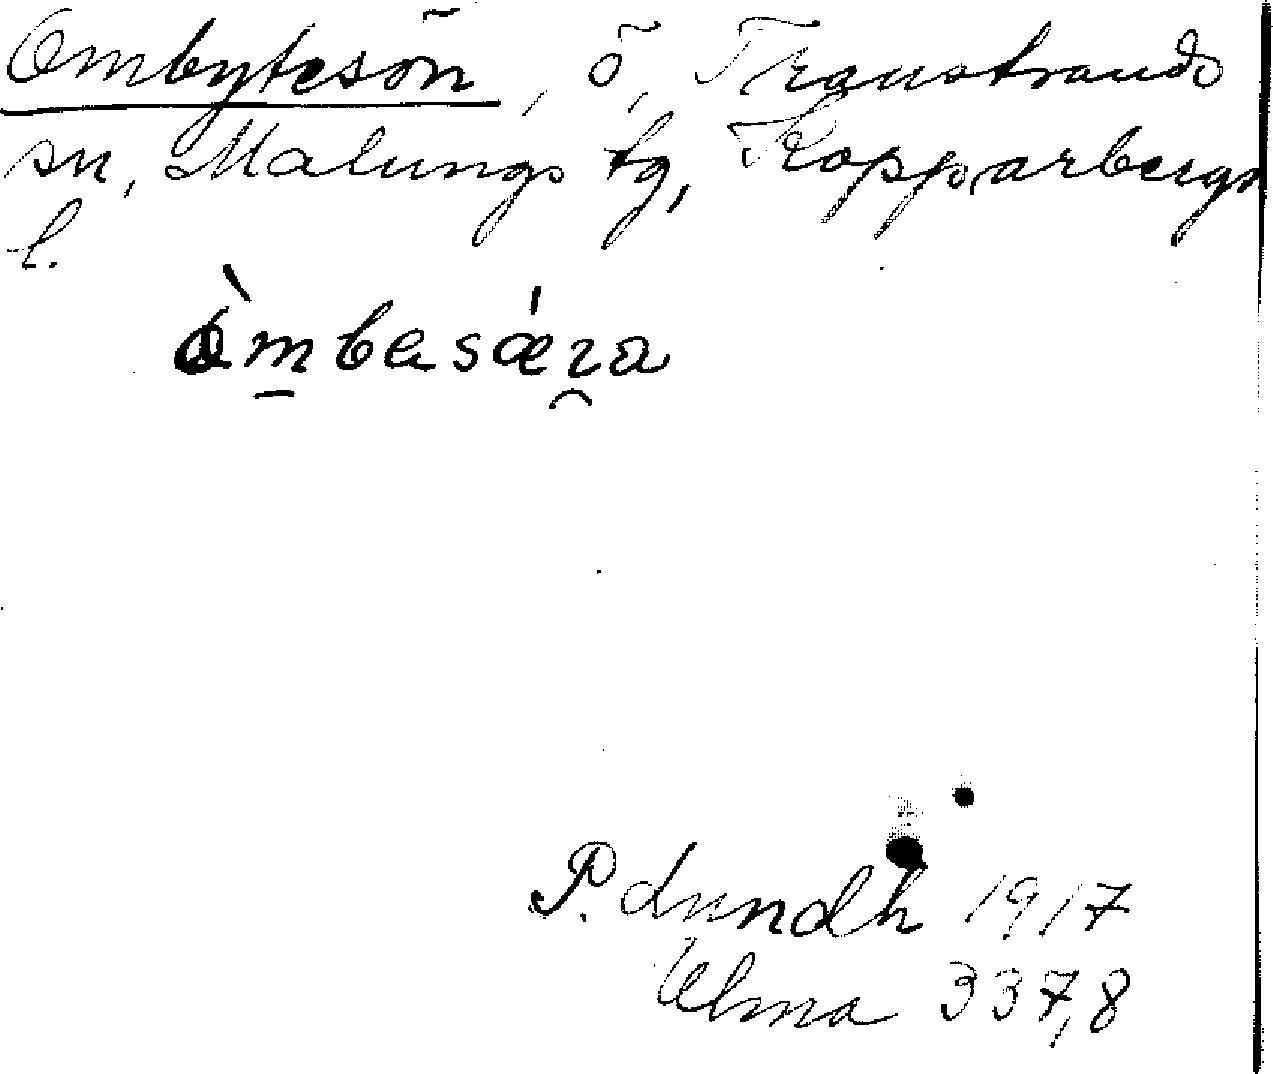 Ombytesön, ö, Transtrands
sn, Malungs tg, Kopparbergs
l.
òmbasǽra
P. Lundh 1917
Ulma 337,8